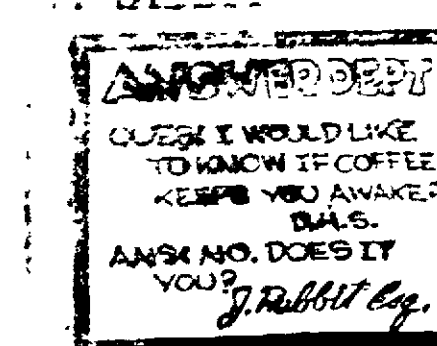 ANSWER DEPT
QUES: I WOULD LIKE
TO KNOW IF COFFEE
KEEPS YOU AWAKE?
D.H.S.
ANS: NO. DOES IT
YOU?
J. Rubbit Esq.